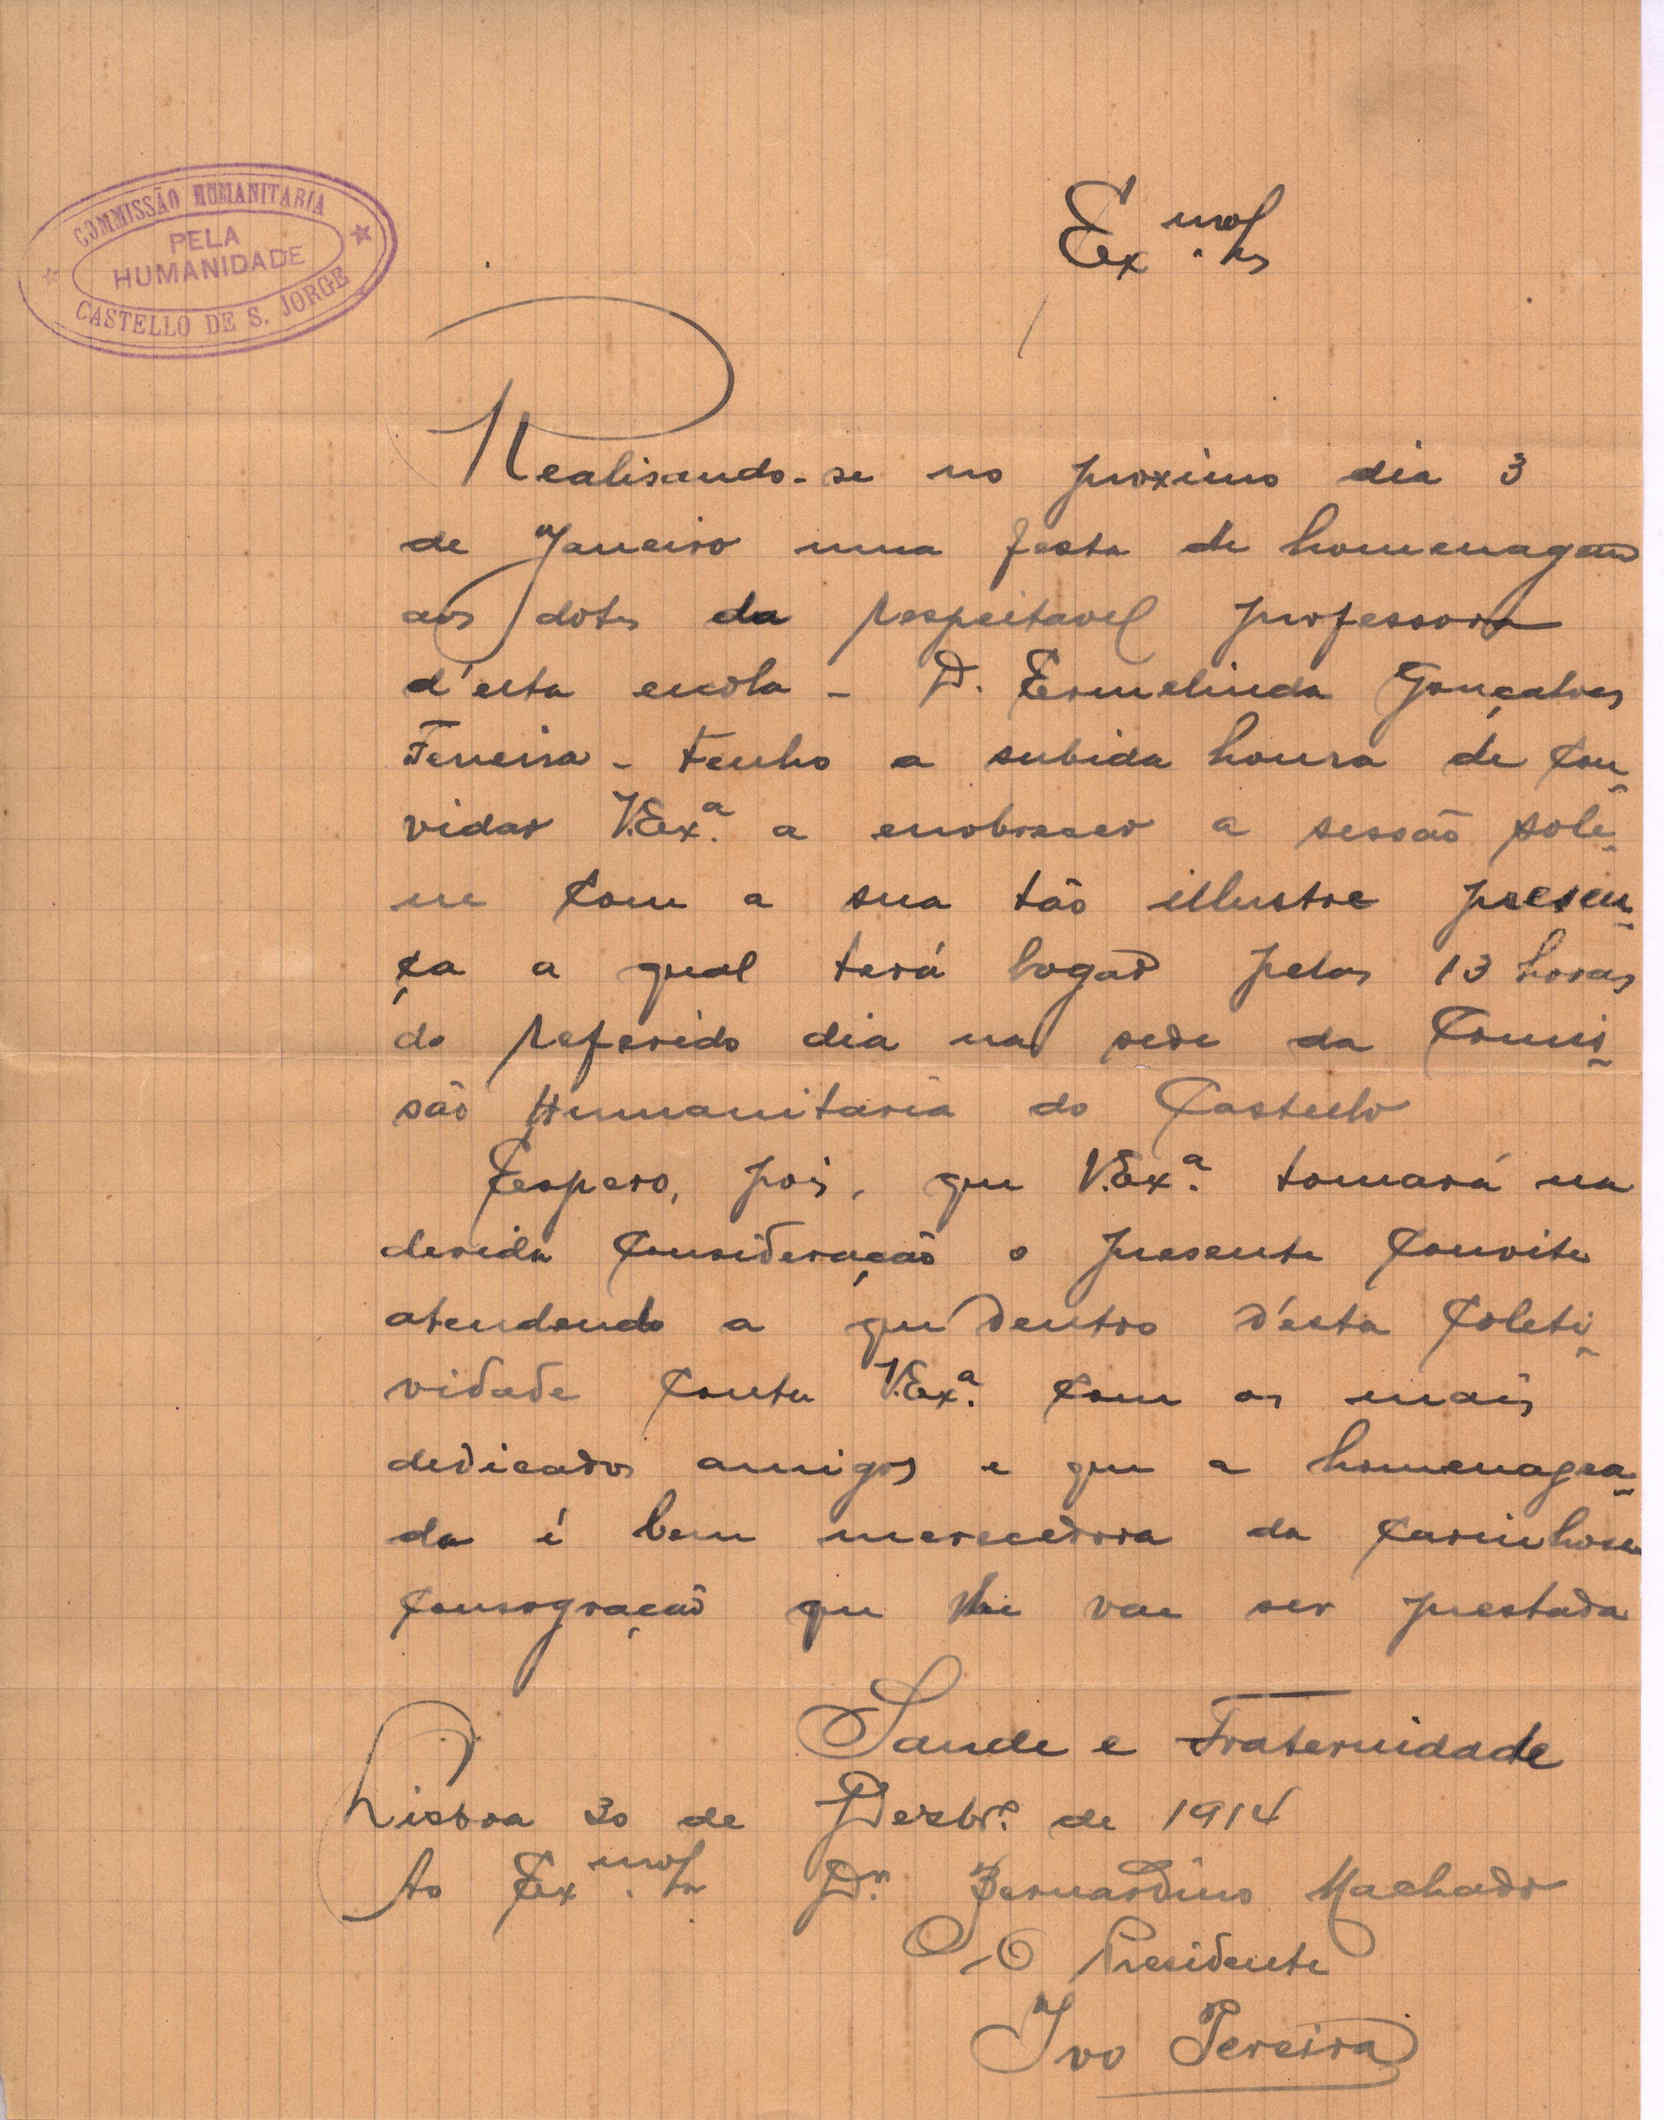 COMMISSÃO HUMANITARIA
PELA
HUMANIDADE
CASTELLO DE S. JORGE
Ex.mo Sr.
Realisando-se no proximo dia 3
de Janeiro uma festa de homenagem
aos dotes da respeitavel professora
d'esta escola - D. Ermelinda Gonçalves
Ferreira - tenho a subida honra de con-
vidar V.Ex.ª a enobrecer a sessão sole-
ne com a sua tão illustre presen-
ça a qual terá logar pelas 13 horas
do referido dia na sede da Comis-
são Humanitaria do Castello
Espero, pois, que V.Ex.ª tomará na
devida consideração o presente convite
atendendo a que dentro d'esta coleti-
vidade conta V.Ex.ª com os mais
dedicados amigos e que a homenagea-
da é bem merecedora da carinhosa
consagração que lhe vae ser prestada
Saude e Fraternidade
Lisboa 30 de Dezbrº de 1914
Ao Ex.mo Sr. Dr. Bernardino Machado
O Presidente
Ivo Pereira